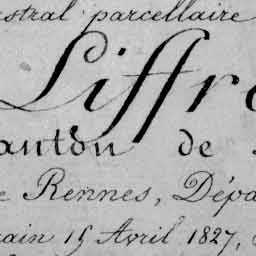 estral parcellaire
Liffré
anton de
e Rennes, Dépa
rain 15 Avril 1827,